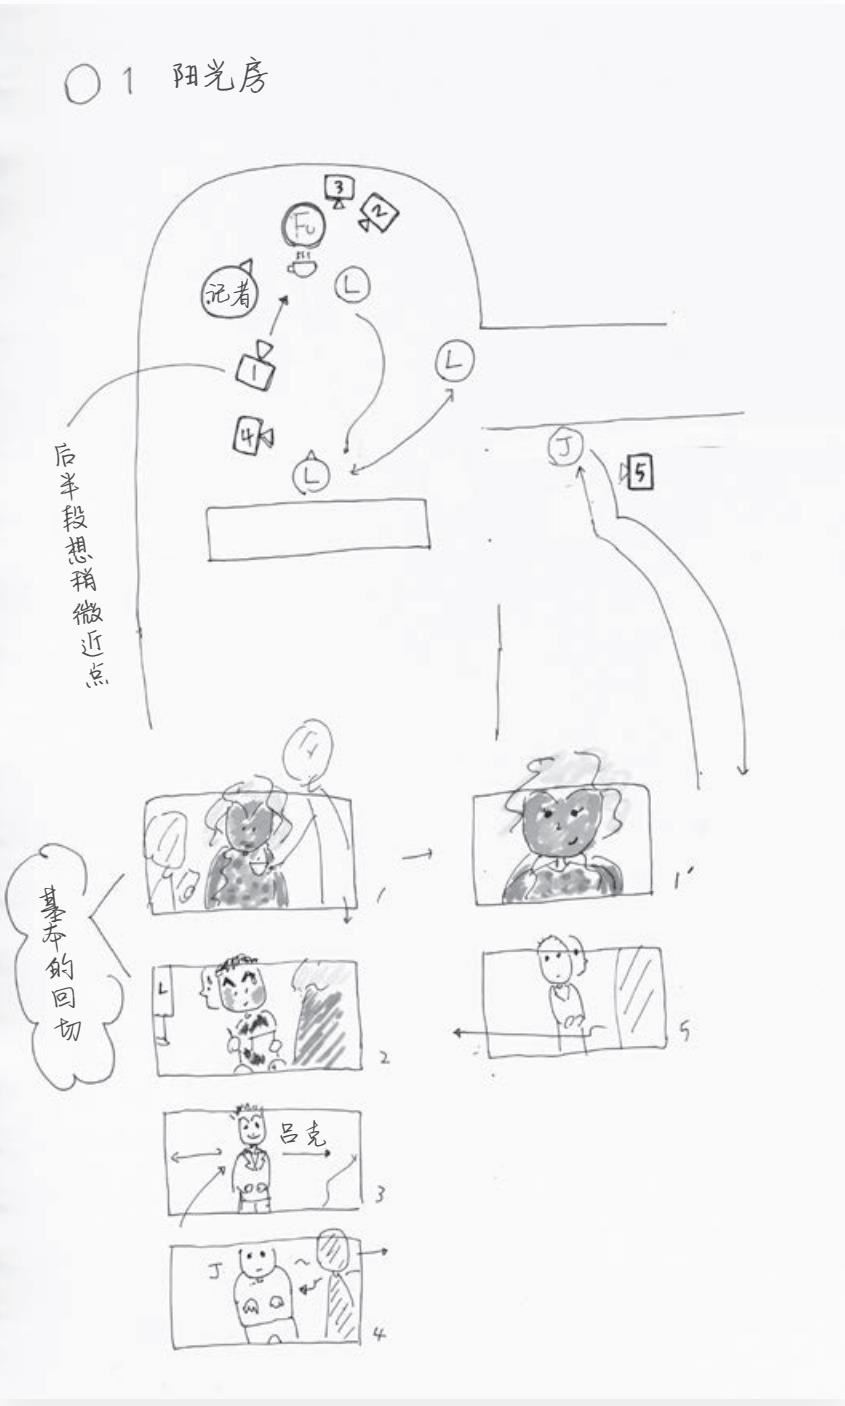 ○1 阳光房
3
2
Fu
记者
L
1
L
4
L
J
5
后半段想稍微近点
1
1'
基本的回切
L
2
5
吕克
3
J
4